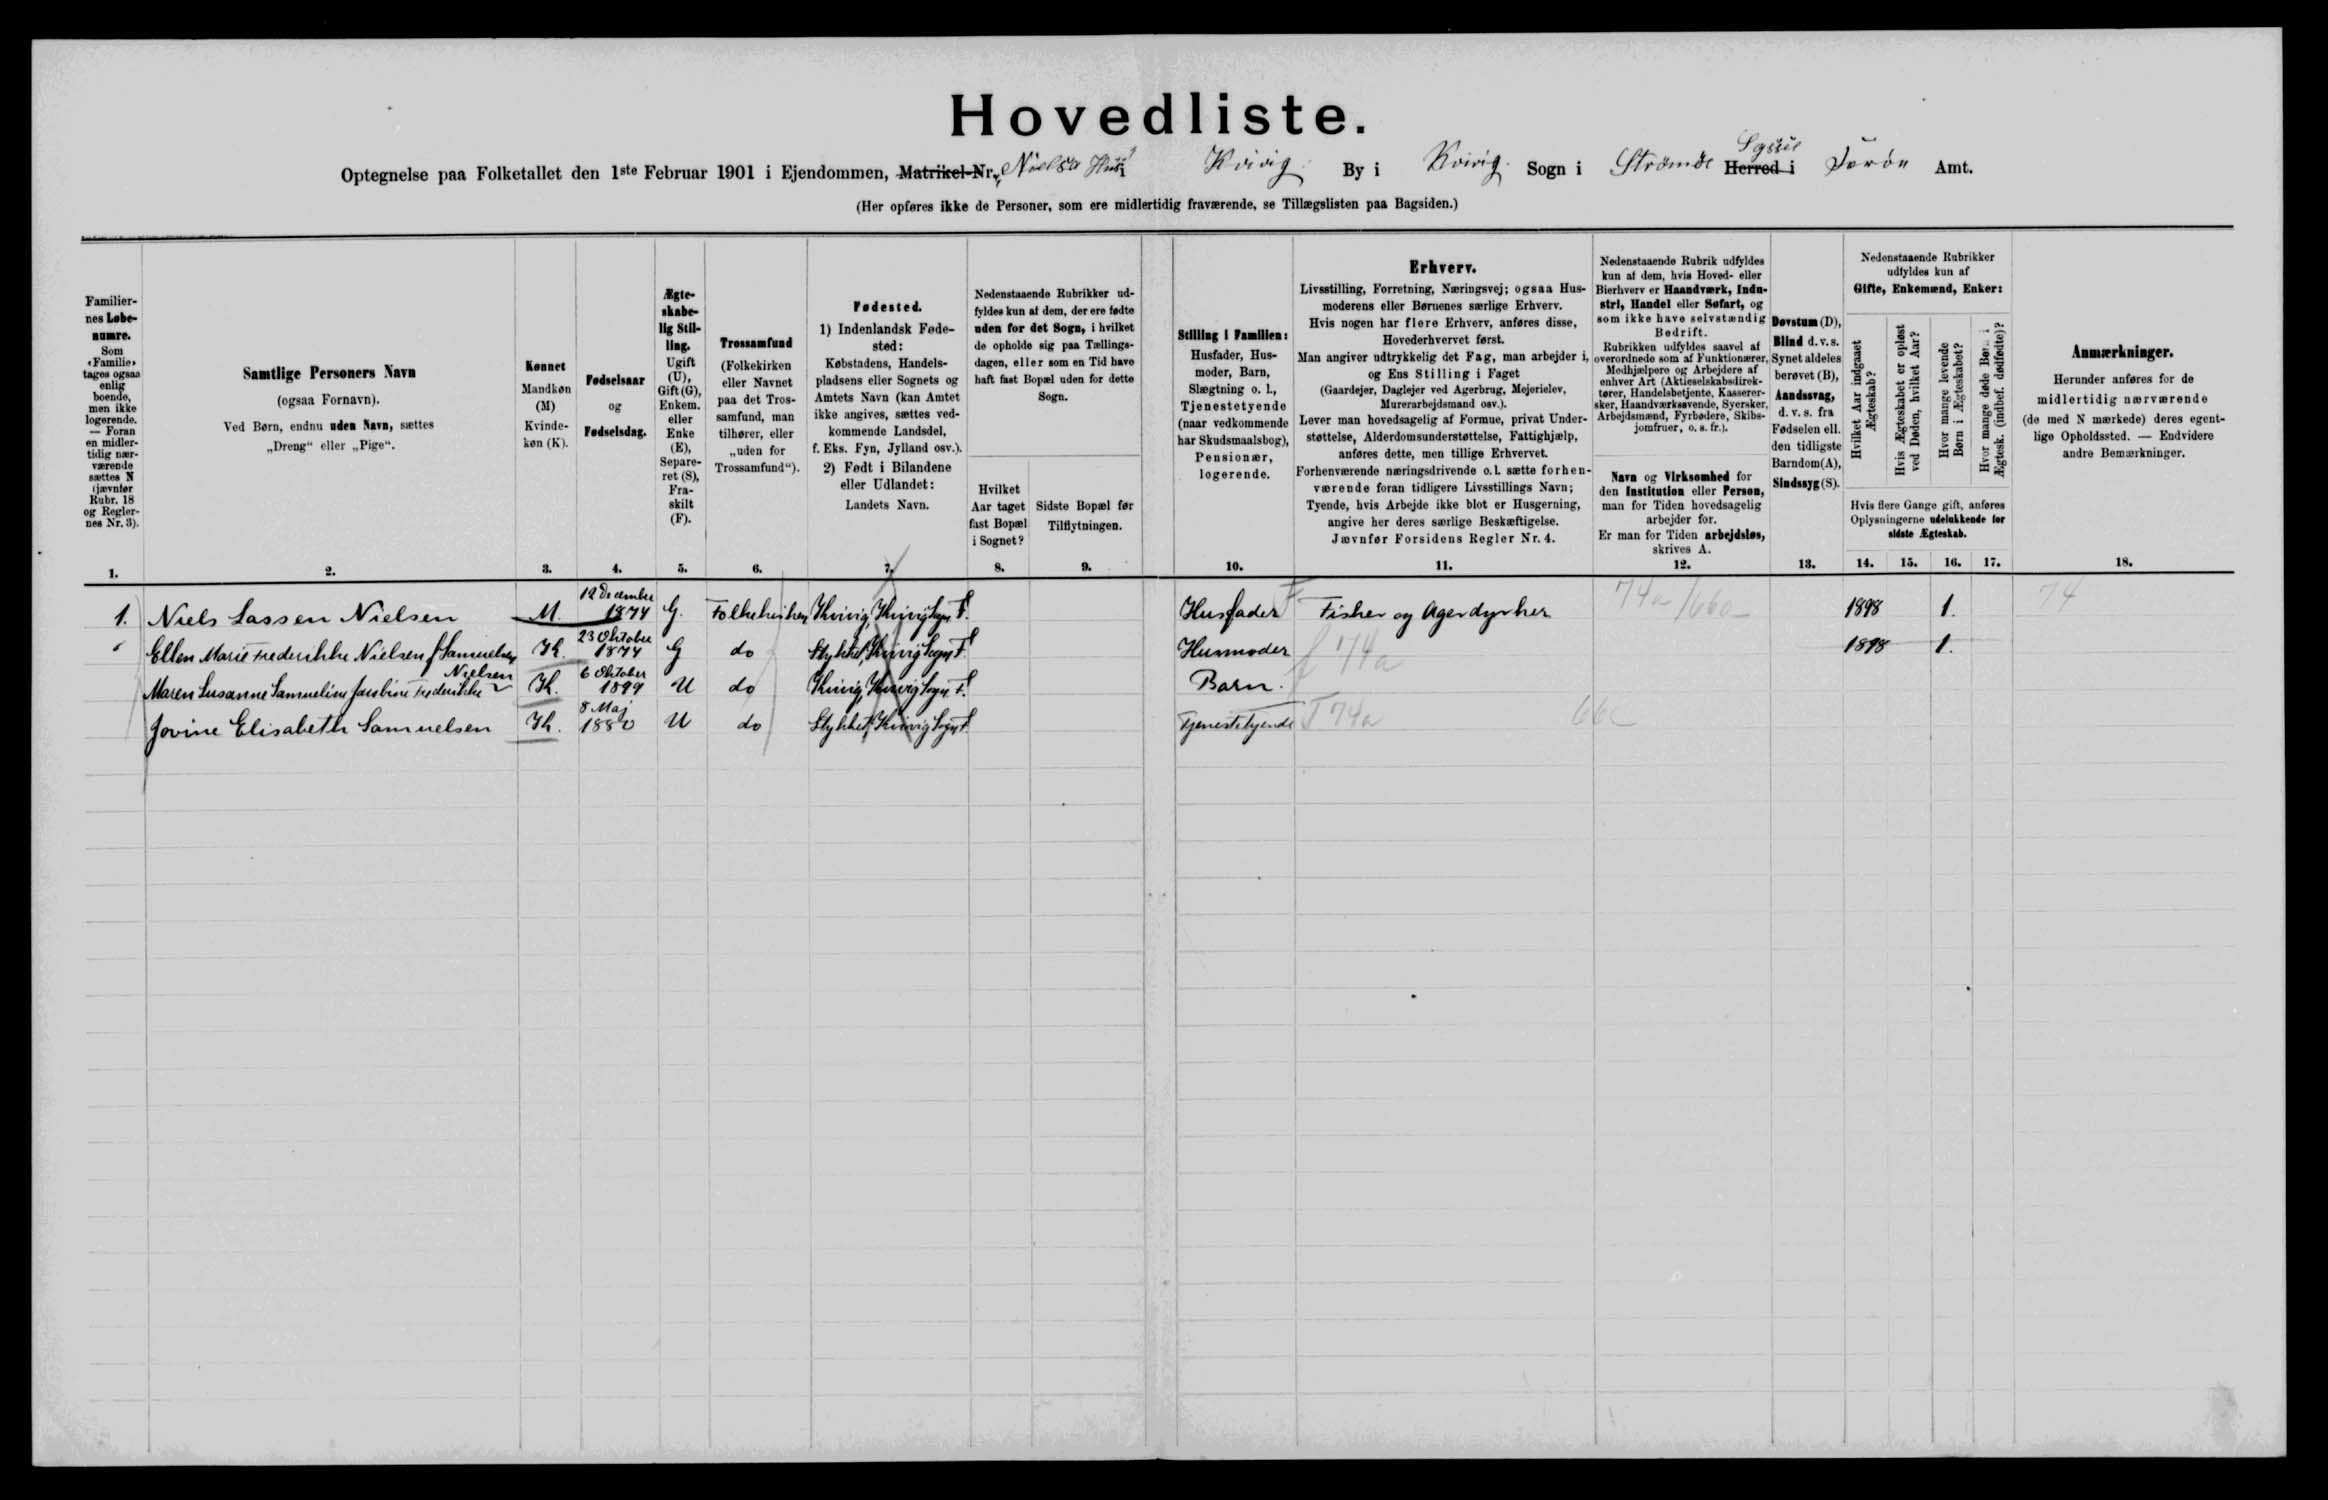 Hovedliste.
Optegnelse paa Folketallet den 1ste Februar 1901 i Ejendommen, Matrikel-Nr. Nielsa Hús i Kvivig By i Kvivig Sogn i Strømø Syssel Herred i Færøe Amt.
(Her opføres ikke de Personer, som ere midlertidig fraværende, se Tillægslisten paa Bagsiden.)
Familier-
nes Løbe-
numre.
Som
«Familie»
tages ogsaa
enlig
boende,
men ikke
logerende.
— Foran
en midler-
tidig nær-
værende
sættes N
(jævnfør
Rubr. 18
og Regler-
nes Nr. 3).
Samtlige Personers Navn
(ogsaa Fornavn).
Ved Børn, endnu uden Navn, sættes
„Dreng“ eller „Pige“.
Kønnet
Mandkøn
(M)
Kvinde-
køn (K).
Fødselsaar
og
Fødselsdag.
Ægte-
skabe-
lig Stil-
ling.
Ugift
(U),
Gift (G),
Enkem.
eller
Enke
(E),
Separe-
ret (S),
Fra-
skilt
(F).
Trossamfund
(Folkekirken
eller Navnet
paa det Tros-
samfund, man
tilhører, eller
„uden for
Trossamfund“).
Fødested.
1) Indenlandsk Føde-
sted:
Købstadens, Handels-
pladsens eller Sognets og
Amtets Navn (kan Amtet
ikke angives, sættes ved-
kommende Landsdel,
f. Eks. Fyn, Jylland osv.).
2) Født i Bilandene
eller Udlandet:
Landets Navn.
Nedenstaaende Rubrikker ud-
fyldes kun af dem, der ere fødte
uden for det Sogn, i hvilket
de opholde sig paa Tællings-
dagen, eller som en Tid have
haft fast Bopæl uden for dette
Sogn.
Hvilket
Aar taget
fast Bopæl
i Sognet?
Sidste Bopæl før
Tilflytningen.
Stilling i Familien:
Husfader, Hus-
moder, Barn,
Slægtning o. l.,
Tjenestetyende
(naar vedkommende
har Skudsmaalsbog),
Pensionær,
logerende.
Erhverv.
Livsstilling, Forretning, Næringsvej; ogsaa Hus-
moderens eller Børnenes særlige Erhverv.
Hvis nogen har flere Erhverv, anføres disse,
Hovederhvervet først.
Man angiver udtrykkelig det Fag, man arbejder i,
og Ens Stilling i Faget
(Gaardejer, Daglejer ved Agerbrug, Mejerielev,
Murerarbejdsmand osv.).
Lever man hovedsagelig af Formue, privat Under-
støttelse, Alderdomsunderstøttelse, Fattighjælp,
anføres dette, men tillige Erhvervet.
Forhenværende næringsdrivende o.l. sætte forhen-
værende foran tidligere Livsstillings Navn;
Tyende, hvis Arbejde ikke blot er Husgerning,
angive her deres særlige Beskæftigelse.
Jævnfør Forsidens Regler Nr. 4.
Nedenstaaende Rubrik udfyldes
kun af dem, hvis Hoved- eller
Bierhverv er Haandværk, Indu-
stri, Handel eller Søfart, og
som ikke have selvstændig
Bedrift.
Rubrikken udfyldes saavel af
overordnede som af Funktionærer,
Medhjælpere og Arbejdere af
enhver Art (Aktieselskabsdirek-
tører, Handelsbetjente, Kasserer-
sker, Haandværkssvende, Syersker,
Arbejdsmænd, Fyrbødere, Skibs-
jomfruer, o. s. fr.).
Navn og Virksomhed for
den Institution eller Person,
man for Tiden hovedsagelig
arbejder for.
Er man for Tiden arbejdsløs,
skrives A.
Døvstum (D),
Blind d. v. s.
Synet aldeles
berøvet (B),
Aandssvag,
d. v. s. fra
Fødselen ell.
den tidligste
Barndom (A),
Sindssyg (S).
Nedenstaaende Rubrikker
udfyldes kun af
Gifte, Enkemænd, Enker:
Hvilket Aar indgaaet
Ægteskab?
Hvis Ægteskabet er opløst
ved Døden, hvilket Aar?
Hvor mange levende
Børn i Ægteskabet?
Hvor mange døde Børn i
Ægtesk. (indbef. dødfødte)?
Hvis flere Gange gift, anføres
Oplysningerne udelukkende for
sidste Ægteskab.
Anmærkninger.
Herunder anføres for de
midlertidig nærværende
(de med N mærkede) deres egent-
lige Opholdssted. — Endvidere
andre Bemærkninger.
1. 2. 3. 4. 5. 6. 7. 8. 9. 10. 11. 12. 13. 14. 15. 16. 17. 18.
1. Niels Sassen Nielsen M. 12 December 1874 G. Folkekirken Kvivig, Kvivig Sogn F. Husfader F Fisker og Agerdyrker 74a/66a 1898 1. 74
Ellen Marie Frederikke Nielsen f Samuelsen K. 23 Oktober 1874 G do Stykket, Kvivig Sogn F. Husmoder f 74a 1898 1.
Maren Susanne Samueline Jacobine Frederikke Nielsen K. 6 Oktober 1899 U do Kvivig, Kvivig Sogn F. Barn.
Jovine Elisabeth Samuelsen K. 8 Maj 1880 U do Stykket, Kvivig Sogn F. Tjenestetyende T 74a 66c